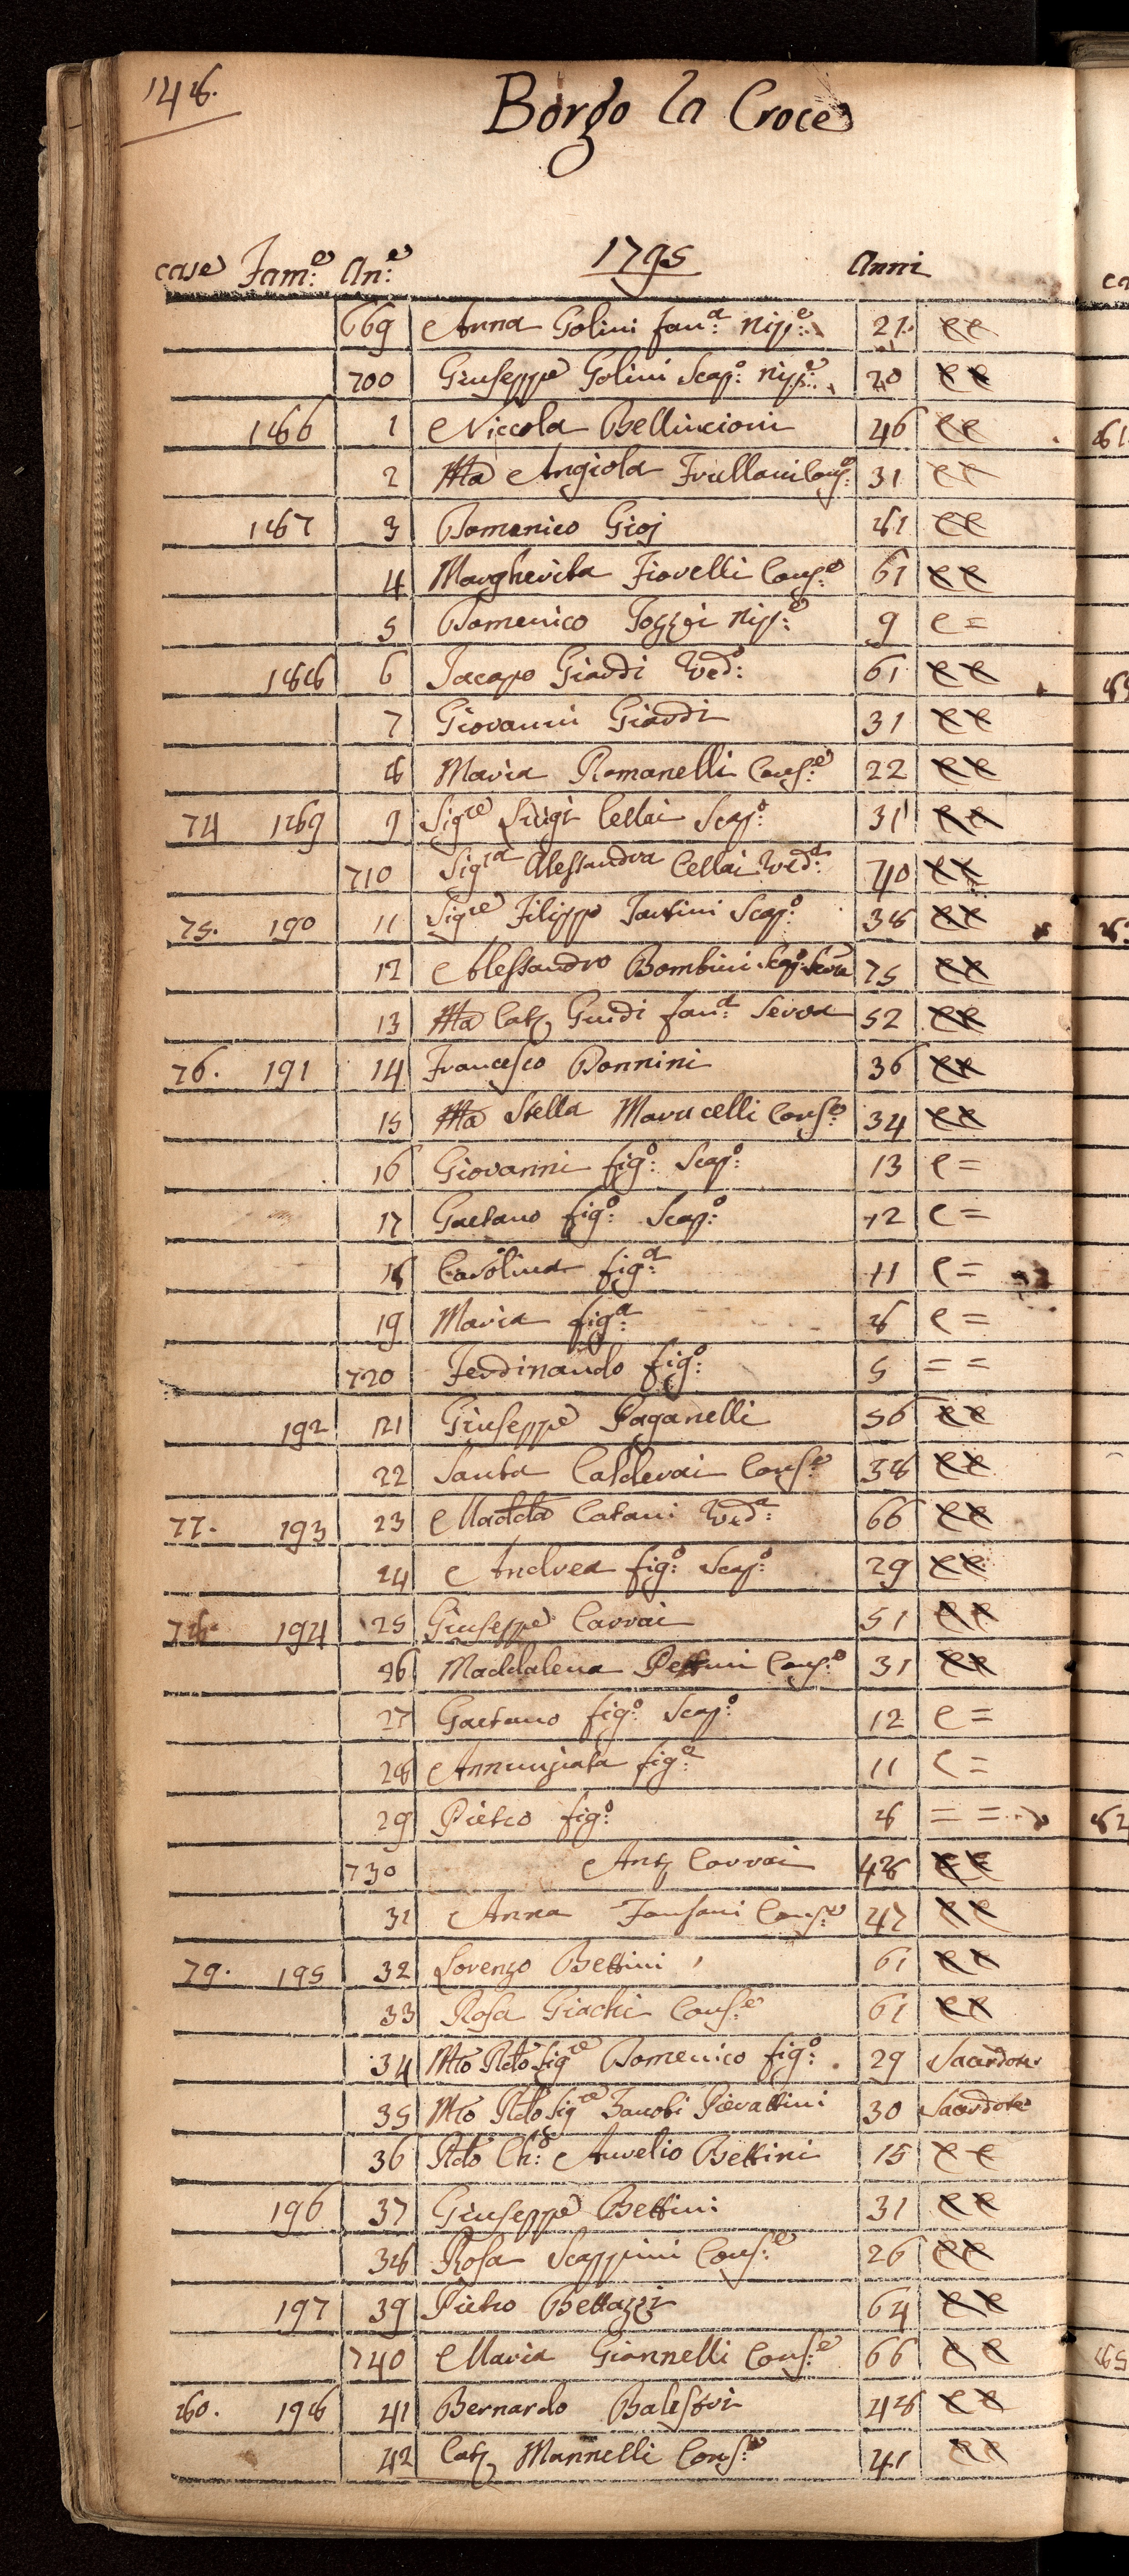 148.
Borgo la Croce
1795
case Fam:e An:e Anni
669 Anna Golini fan:a nip:e 21. cc
700 Giuseppe Golini Scap:o nip:e 20 cc
186 1 Niccola Bellincioni 46 cc
2 Ma Angiola Frullani Cons:e 31 cc
187 3 Domenico Gioj 81 cc
4 Margherita Fiorelli Cons:e 61 cc
5 Domenico Tozzi nip:e 9 c =
188 6 Jacapo Giardi Ved:o 61 cc
7 Giovanni Giardi 31 cc
8 Maria Romanelli Cons:e 22 cc
74 189 9 Sigre Luigi Cellai Scap:o 31 cc
710 Sigra Alessandra Cellai Ved:a 70 cc
75. 190 11 Sigre Filippo Tartini Scap:o 38 cc
12 Alessandro Bombini Scap:o 75 cc
13 Ma Cat. Guidi fan:a Serva 52 cc
76. 191 14 Francesco Bonnini 36 cc
15 Ma Stella Marucelli Cons:e 34 cc
16 Giovanni fig:o Scap:o 13 c =
17 Gaetano fig:o Scap:o 12 c =
18 Carolina fig:a 11 c =
19 Maria fig:a 8 c =
720 Ferdinando fig:o 5 = =
192 121 Giuseppe Paganelli 56 cc
22 Santa Calderai Cons:e 38 cc
77. 193 23 Madda Catani Ved:a 66 cc
24 Andrea fig:o Scap:o 29 cc
78. 194 25 Giuseppe Carrai 51 cc
26 Maddalena Pettini Cons:e 31 cc
27 Gaetano fig:o Scap:o 12 c =
28 Annunziata fig:a 11 c =
29 Pietro fig:o 8 = =
730 Ant. Carrai 48 cc
31 Anna Fansani Cons:e 47 cc
79. 195 32 Lorenzo Bettini 61 cc
33 Rosa Giachi Cons:e 61 cc
34 Mto Rdo Sigre Domenico fig:o 29 Sacerdote
35 Mto Rdo Sigre Zanobi Pierattini 30 Sacerdote
36 Rdo Ch:o Aurelio Bettini 15 cc
196 37 Giuseppe Bettini 31 cc
38 Rosa Scappini Cons:e 26 cc
197 39 Pietro Bettazzi 64 cc
740 Maria Giannelli Cons:e 66 cc
80. 198 41 Bernardo Balestri 48 cc
42 Cat. Mannelli Cons:e 41 cc